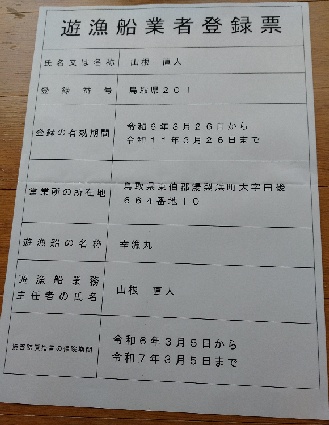 遊漁船業者登録票
氏名又は名称 山根 直人
登録番号 鳥取県201
登録の有効期間 令和6年3月26日から
令和11年3月25日まで
営業所の所在地 鳥取県東伯郡湯梨浜町大字田後
664番地10
遊漁船の名称 幸流丸
遊漁船業務
主任者の氏名 山根 直人
令和6年3月5日から
令和7年3月5日まで